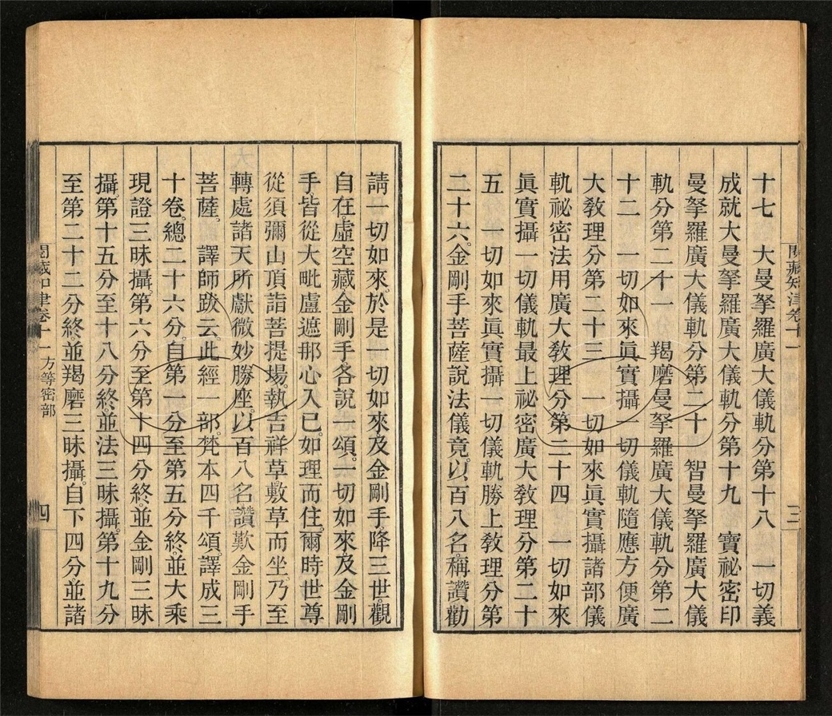 閱藏知津卷十一
三
十七 大曼拏羅廣大儀軌分第十八 一切義
成就大曼拏羅廣大儀軌分第十九 寶祕密印
曼拏羅廣大儀軌分第二十 智曼拏羅廣大儀
軌分第二十一 羯磨曼拏羅廣大儀軌分第二
十二 一切如來眞實攝一切儀軌隨應方便廣
大敎理分第二十三 一切如來眞實攝諸部儀
軌祕密法用廣大敎理分第二十四 一切如來
眞實攝一切儀軌最上祕密廣大敎理分第二十
五 一切如來眞實攝一切儀軌勝上敎理分第
二十六。金剛手菩薩說法儀竟。以百八名。稱讚勸
請一切如來。於是一切如來及金剛手。降三世。觀
自在。虛空藏。金剛手。各說一頌。一切如來及金剛
手。皆從大毗盧遮那心入已。如理而住。爾時世尊
從須彌山頂。詣菩提場。執吉祥草。敷草而坐。乃至
轉處諸天所獻微妙勝座。以百八名。讚歎金剛手
菩薩。 譯師跋云。此經一部。梵本四千頌。譯成三
十卷。總二十六分。自第一分至第五分終。並大乘
現證三昧攝。第六分至第十四分終。並金剛三昧
攝。第十五分至十八分終。並法三昧攝。第十九分
至第二十二分終。並羯磨三昧攝。自下四分。並諸
閱藏知津卷十一 方等密部
四